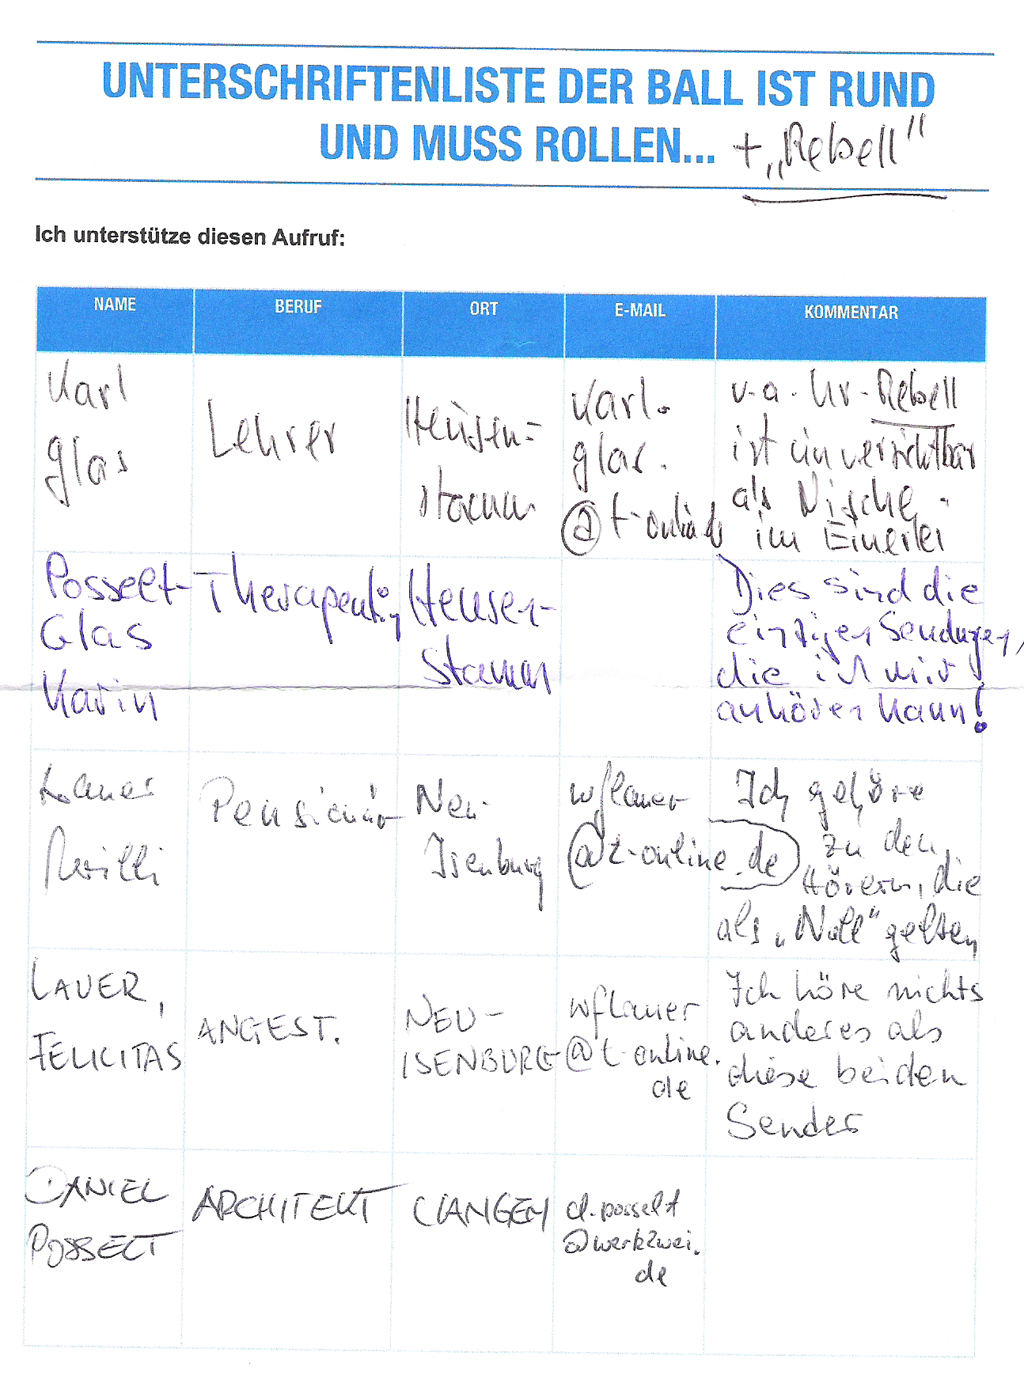 UNTERSCHRIFTENLISTE DER BALL IST RUND
UND MUSS ROLLEN... + „Rebell"
Ich unterstütze diesen Aufruf:
NAME BERUF ORT E-MAIL KOMMENTAR
Karl
Glas
Lehrer
Heusen=
stamm
Karl.
glas.
@t-online.de
v.a. hr-Rebell
ist unverzichtbar
als Nische
im Einerlei
Posselt-
Glas
Karin
Therapeutin
Heusen-
stamm
Dies sind die
einzigen Sendungen,
die ich mir
anhören kann!
Lauer
Willi
Pensionär
Neu-
Isenburg
wflauer
@t-online.de
Ich gehöre
zu den
Hörern, die
als „Null" gelten
LAUER,
FELICITAS
ANGEST.
NEU-
ISENBURG
wflauer
@t-online.
de
Ich höre nichts
anderes als
diese beiden
Sender
DANIEL
POSSELT
ARCHITEKT
d.posselt
@werkzwei.
de